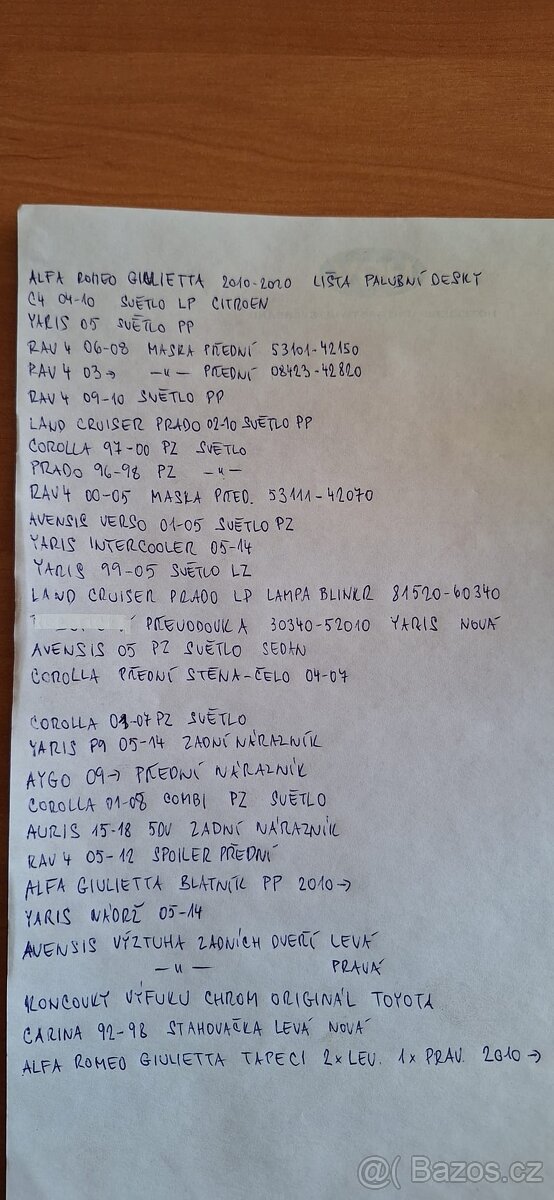 ALFA ROMEO GIULIETTA 2010-2020 LIŠTA PALUBNÍ DESKY
C4 04-10 SVĚTLO LP CITROEN
YARIS 05 SVĚTLO PP
RAV 4 06-08 MASKA PŘEDNÍ 53101-42150
RAV 4 03→ —〃— PŘEDNÍ 08423-42820
RAV 4 09-10 SVĚTLO PP
LAND CRUISER PRADO 02-10 SVĚTLO PP
COROLLA 97-00 PZ SVĚTLO
PRADO 96-98 PZ —〃—
RAV 4 00-05 MASKA PŘED. 53111-42070
AVENSIS VERSO 01-05 SVĚTLO PZ
YARIS INTERCOOLER 05-14
YARIS 99-05 SVĚTLO LZ
LAND CRUISER PRADO LP LAMPA BLINKR 81520-60340
PŘEVODOVKA 30340-52010 YARIS NOVÁ
AVENSIS 05 PZ SVĚTLO SEDAN
COROLLA PŘEDNÍ STĚNA-ČELO 04-07
COROLLA 01-07 PZ SVĚTLO
YARIS P9 05-14 ZADNÍ NÁRAZNÍK
AYGO 09→ PŘEDNÍ NÁRAZNÍK
COROLLA 01-08 COMBI PZ SVĚTLO
AURIS 15-18 5DV ZADNÍ NÁRAZNÍK
RAV 4 05-12 SPOILER PŘEDNÍ
ALFA GIULIETTA BLATNÍK PP 2010→
YARIS NÁDRŽ 05-14
AVENSIS VÝZTUHA ZADNÍCH DVEŘÍ LEVÁ
—〃— PRAVÁ
KONCOVKY VÝFUKU CHROM ORIGINÁL TOYOTA
CARINA 92-98 STAHOVAČKA LEVÁ NOVÁ
ALFA ROMEO GIULIETTA TAPECÍ 2x LEV. 1x PRAV. 2010→
@( Bazos.cz